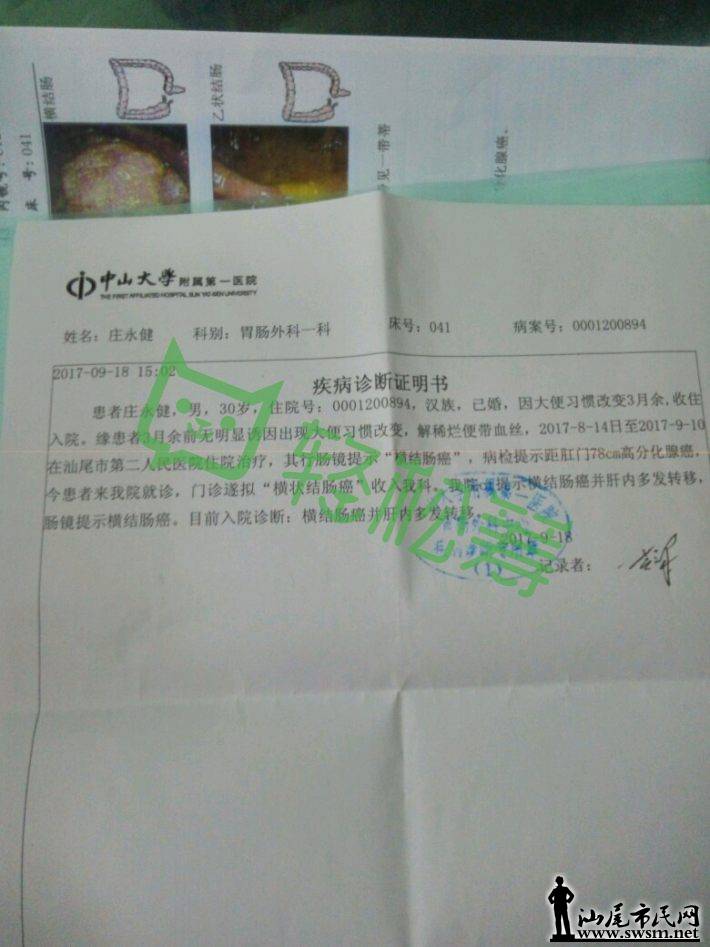 横结肠
乙状结肠
床 号：041
中山大学附属第一医院
THE FIRST AFFILIATED HOSPITAL, SUN YAT-SEN UNIVERSITY
姓名：庄永健 科别：胃肠外科一科 床号：041 病案号：0001200894
2017-09-18 15:02
疾病诊断证明书
患者庄永健，男，30岁，住院号：0001200894，汉族，已婚，因大便习惯改变3月余，收住
入院。缘患者3月余前无明显诱因出现大便习惯改变，解稀烂便带血丝，2017-8-14日至2017-9-10
在汕尾市第二人民医院住院治疗，其行肠镜提示“横结肠癌”，病检提示距肛门78cm高分化腺癌，
今患者来我院就诊，门诊遂拟“横状结肠癌”收入我科。我院 提示横结肠癌并肝内多发转移，
肠镜提示横结肠癌。目前入院诊断：横结肠癌并肝内多发转移。
2017-9-18
记录者：
轻松筹
汕尾市民网
www.swsm.net